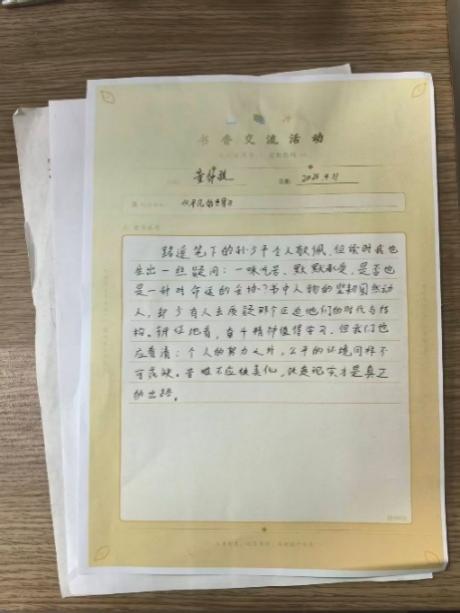 书香交流活动
2025.4.21
《平凡的世界》
路遥笔下的孙少平令人敬佩,但读时我也
生出一些疑问:一味吃苦、默默承受,是否也
是一种对命运的妥协?书中人物的坚韧固然动
人,却少有人去质疑那个压迫他们的时代与结
构。辩证地看,奋斗精神值得学习,但我们也
应看清:个人的努力之外,公平的环境同样不
可或缺。苦难不应被美化,改变现实才是真正
的出路。